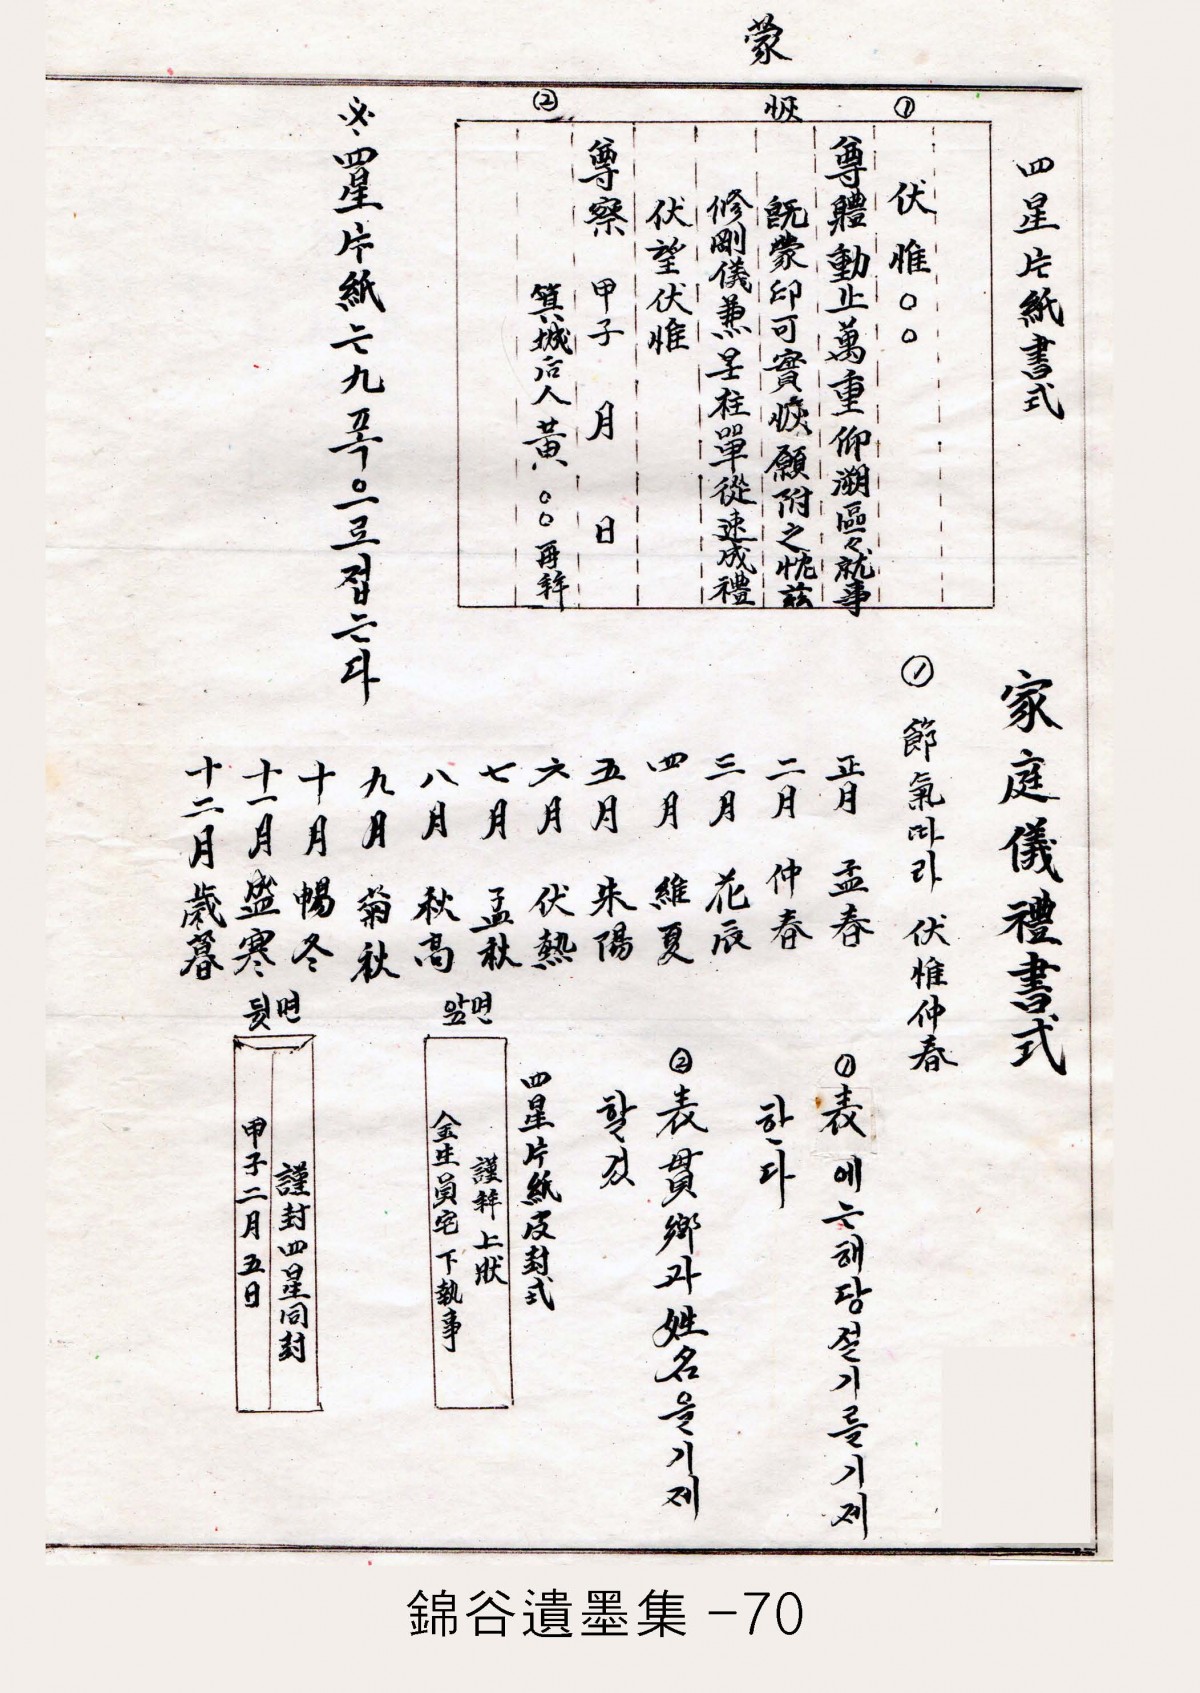 蒙
家庭儀禮書式
四星片紙書式
①
伏惟○○
尊體動止萬重仰溯區々就事
旣蒙印可實愜願附之忱玆
愜
修剛儀兼呈柱單從速成禮
伏望伏惟
尊察 甲子 月 日
②
箕城后人 黃○○ 再拜
※四星片紙는九폭으로접는다
① 節氣따라 伏惟仲春
正月 孟春
二月 仲春
三月 花辰
四月 維夏
五月 朱陽
六月 伏熱
七月 孟秋
八月 秋高
九月 菊秋
十月 暢冬
十一月 盛寒
十二月 歲暮
①表에는해당절기를기제
한다
②表貫鄕과姓名을기제
할것
四星片紙皮封式
앞면
謹拜上狀
金生員宅 下執事
뒷면
謹封四星同封
甲子二月五日
錦谷遺墨集 -70